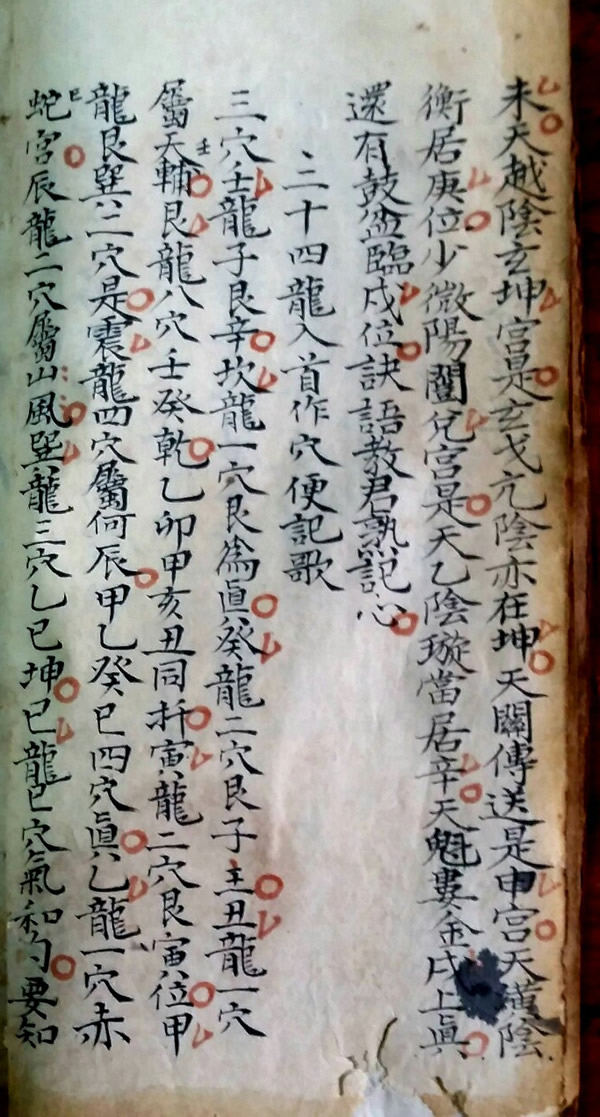 未天越陰玄坤宮是玄戈亢陰亦在坤天關傳送是申宮天潢陰
衡居庚位少微陽闔兌宮是天乙陰璇當居辛天魁婁金戌上眞
還有鼓盆臨戌位訣語教君熟記心
二十四龍入首作穴便記歌
三穴壬龍子艮辛坎龍一穴艮為眞癸龍二穴艮子壬丑龍一穴
屬天輔艮龍八穴壬癸乾乙卯甲亥丑同扦寅龍二穴艮寅位甲
龍艮巽二穴是震龍四穴屬何辰甲乙癸巳四穴眞乙龍一穴赤
蛇巳宮辰龍二穴屬山風巽龍三穴乙巳坤巳龍巳穴氣和勻要知